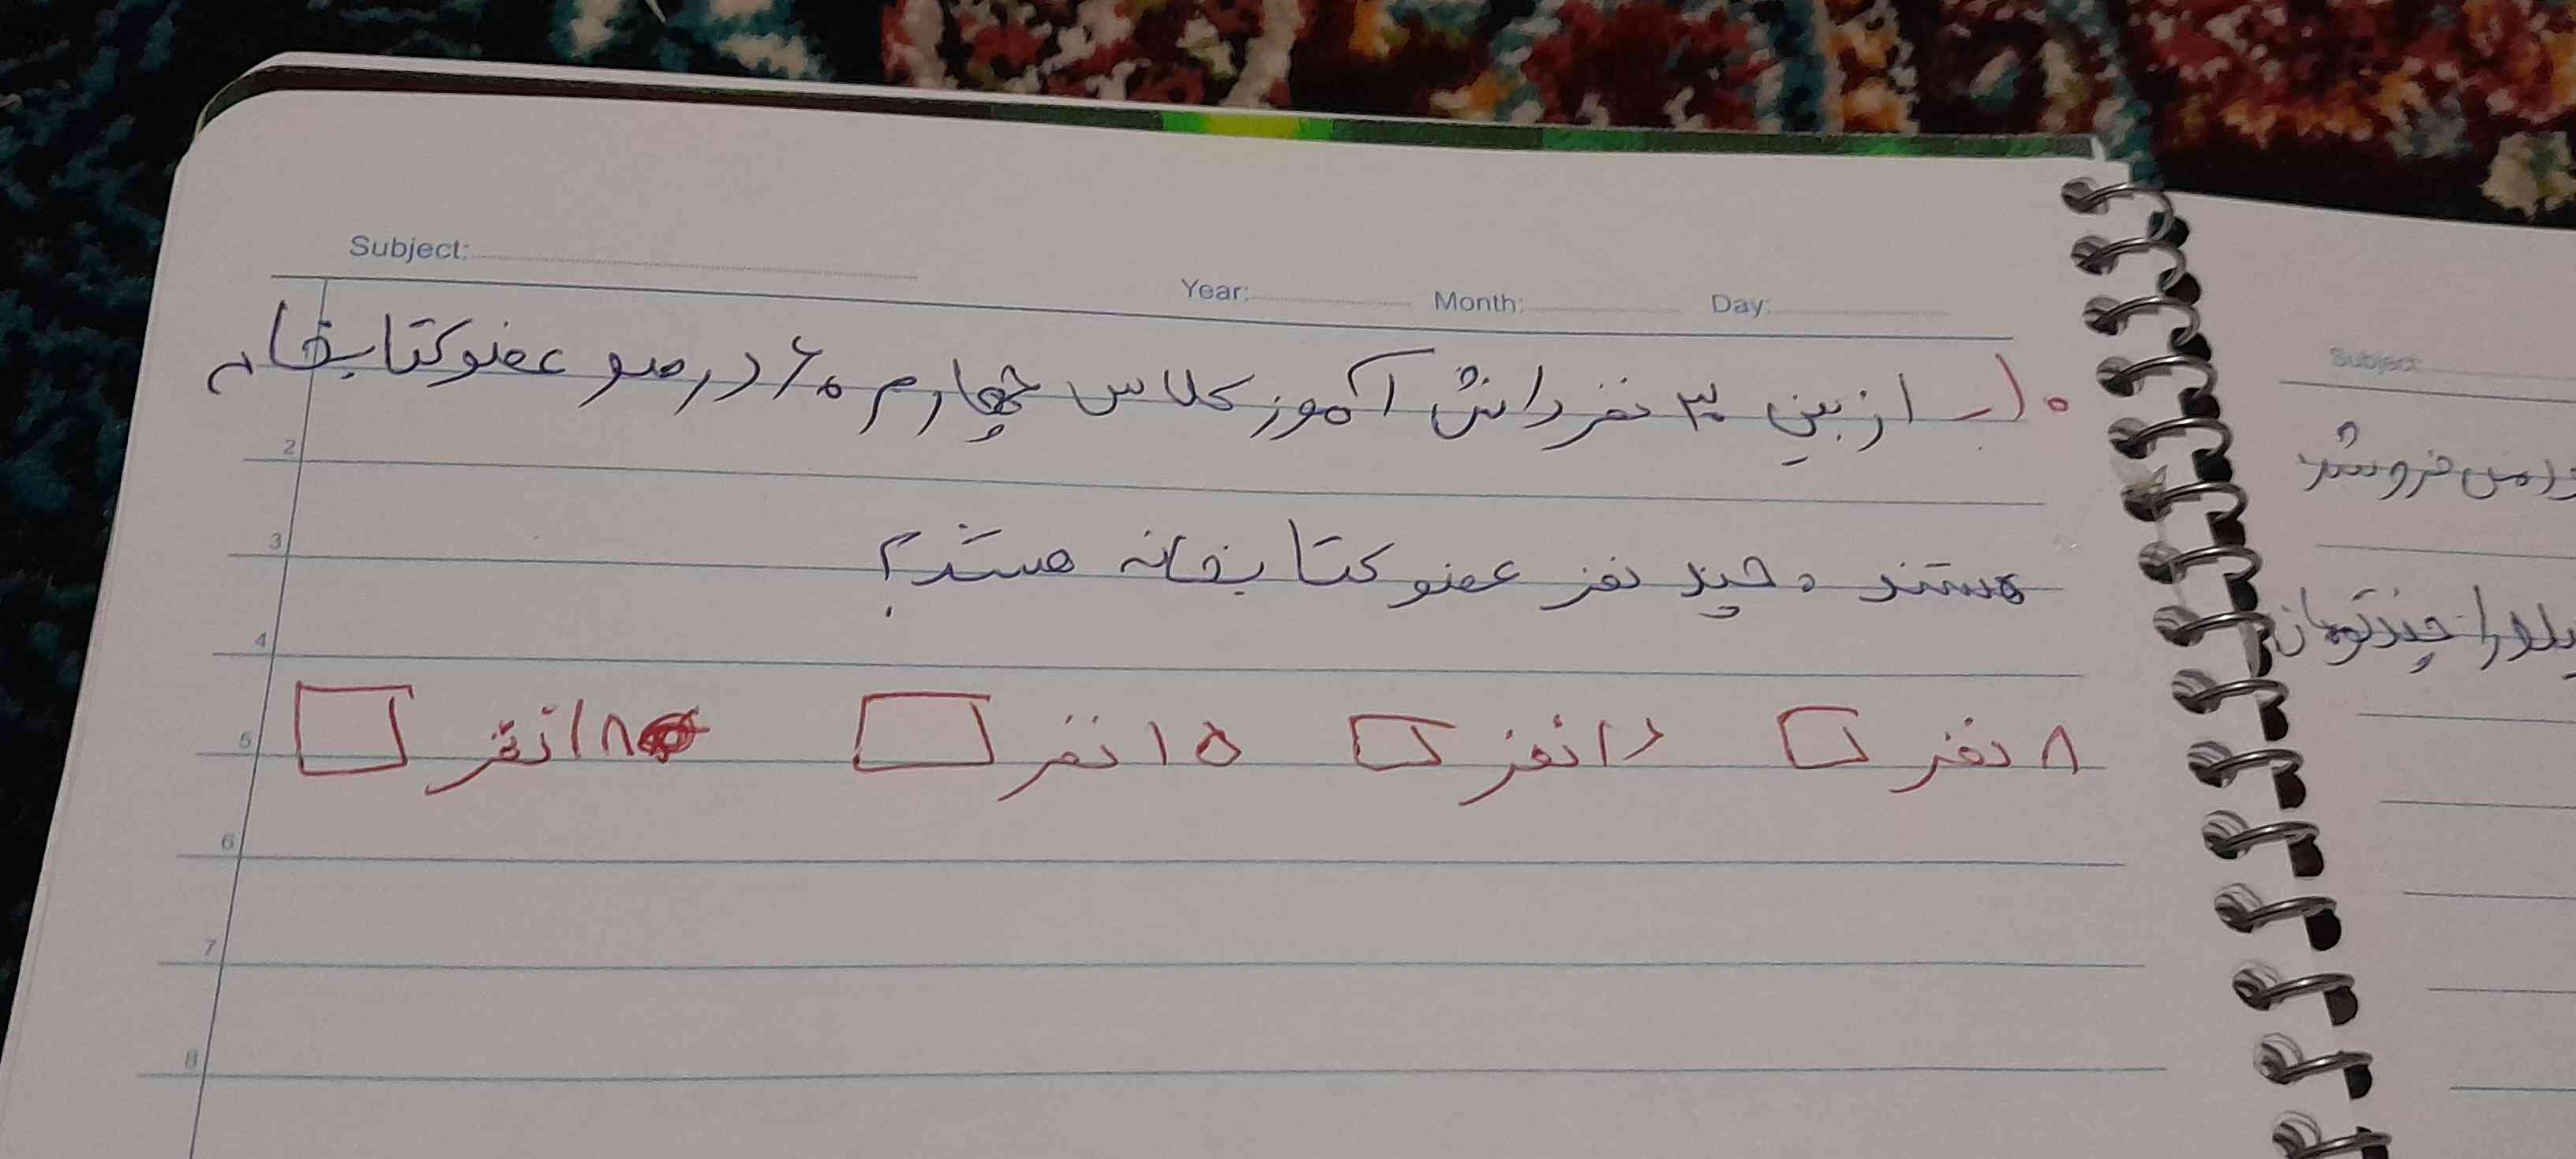 Subject:
Year: Month: Day:
۱۰ـ از بین ۳۰ نفر دانش آموز کلاس چهارم ۶۰ درصد عضو کتابخانه
هستند. چند نفر عضو کتابخانه هستند؟
۸ نفر □ ۱۲ نفر □ ۱۵ نفر □ ۱۸ نفر □
2
3
4
5
6
7
8
Subject:
می فروشد
را چند تومان